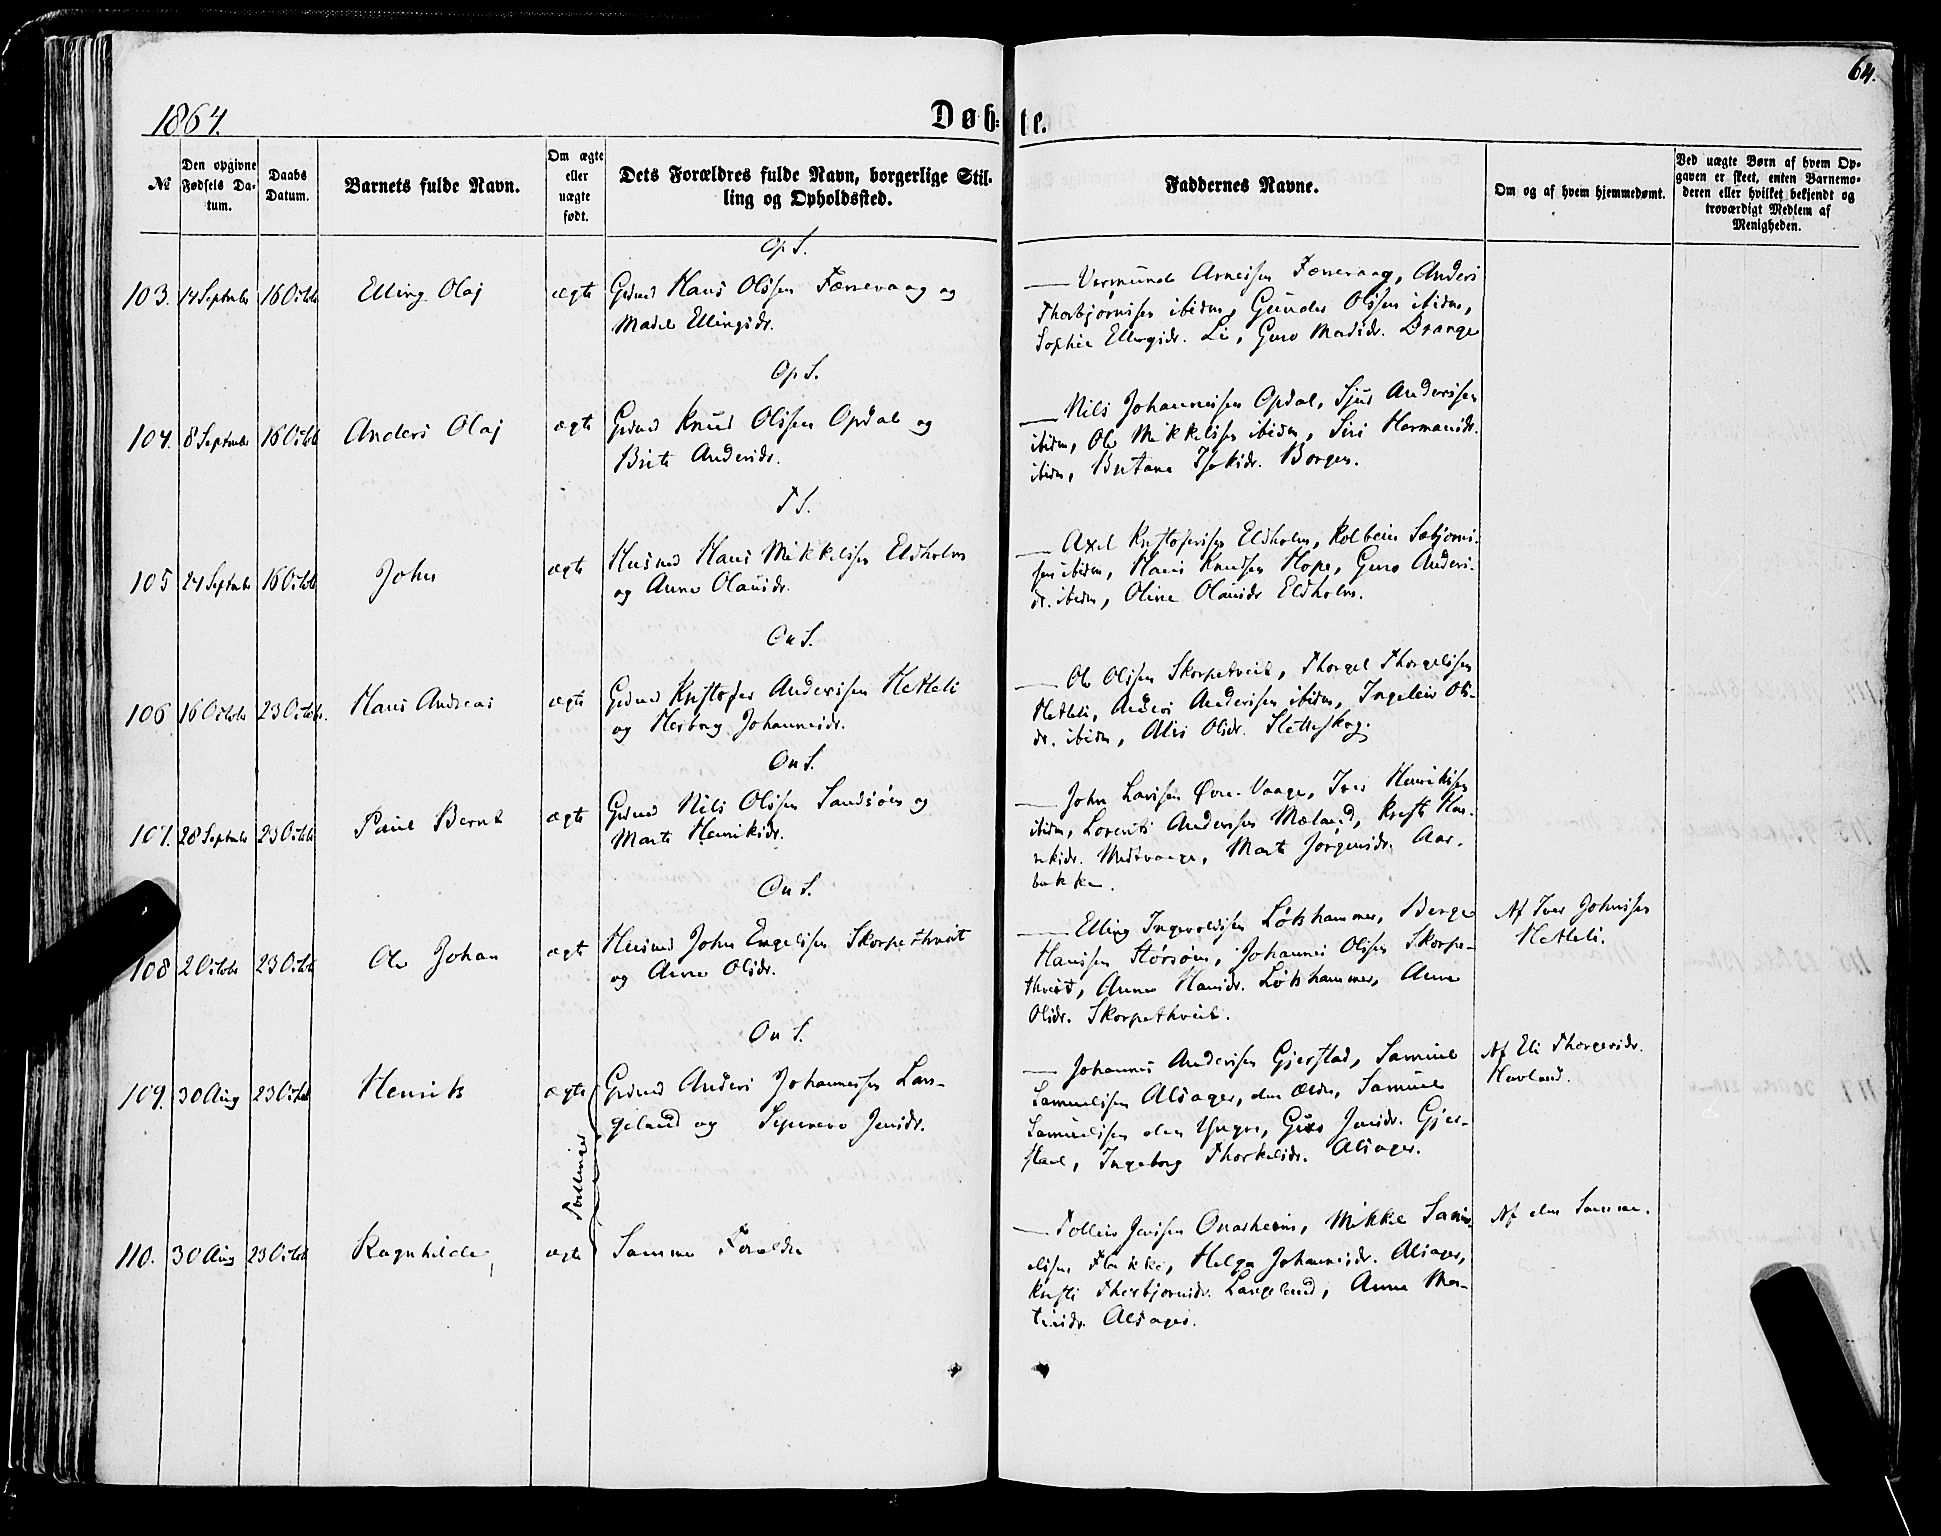 64.
1864.
Døb-te.
№
Den opgivne Fødsels Da-tum.
Daabs Datum.
Barnets fulde Navn.
Om ægte eller uægte født.
Dets Forældres fulde Navn, borgerlige Stil-
ling og Opholdssted.
Faddernes Navne.
Om og af hvem hjemmedømt.
Ved uægte Børn af hvem Op-
gaven er skeet, enten Barnemo-
deren eller hvilket bekjendt og
troværdigt Medlem af
Menigheden.
Op S.
103. 14 September 16 Octob Elling Olaj ægte Grdmd Hans Olsen Færrevaag og
Madel Ellingsdr.
Anders
Thorbjørnsen ibidm, Gunder Olsen ibidm,
Sophie Ellingsdr. Li, Guro Madsdr. Drange
Op S.
104. 8 September 16 Octob Anders Olaj ægte Grdmd Knud Olsen Opdal og
Brite Andersdr.
Nils Johannesen Opdal, Sjur Andersen
ibidm, Ole Mikkelsen ibidm, Siri Hermansdr.
ibidm, Borgen.
T S.
105 24 September 16 Octob John ægte Husmd Hans Mikkelsen Eldholm
og Anne Olausdr.
Axel Kristofersen Eldholm, Kolbein
sen ibidm, Hans Knudsen Hope, Guro Anders-
dr. ibidm, Oline Olausdr Eldholm.
On S.
106 16 Octob 23 Octob. Hans Andreas ægte Grdmd Kristofer Andersen Hetleli
og Herborg Johannesdr.
Ole Olsen Skorpetveit, Thorgel Thorgelsen
Hetleli, Anders Andersen ibidm, Ingeleiv Ols-
dr. ibidm, Alis Olsdr. Sletteskog.
On S.
107. 28 September 23 Octob Paul Bernt ægte Grdmd Nils Olsen Sandsøen og
Marte Henriksdr.
John Larsen Øvre-Vaage, Iver Henriksen
ibidm, Lorents Andersen Mæland, Kristi Hen-
riksdr. Nedrevaage, Marte Jørgensdr. Aar-
bakke.
On S.
108 2 Octob 23 Octob Ole Johan ægte Husmd John Engelsen Skorpethveit
og Anne Olsdr.
Elling Ingevoldsen Løkhammer, Berge
Hansen Størsøen, Johannes Olsen Skorpe-
thveit, Anne Hansdr. Løkhammer, Anne
Olsdr. Skorpethveit.
Af Iver Johnsen
Hetleli.
On S.
109. 30 Aug 23 Octob Henrik ægte Grdmd Anders Johannesen Lan-
geland og Jensdr.
Johannes Andersen Gjerstad, Samuel
Samuelsen Alsager, den Ældre, Samuel
Samuelsen den Yngre, Guro Jensdr. Gjer-
stad, Ingeborg Thorkelsdr. Alsager.
Af Eli Thorgersdr.
Havland.
Tvillinger
110. 30 Aug 23 Octob Ragnhilde, ægte Samme Forældre
Tolleiv Onarheim, Mikkel Samu-
elsen Flakke, Helga Johannesdr. Alsager,
Kristi Thorbjørnsdr. Langeland, Anna Mor-
tensdr. Alsager.
Af den Samme.